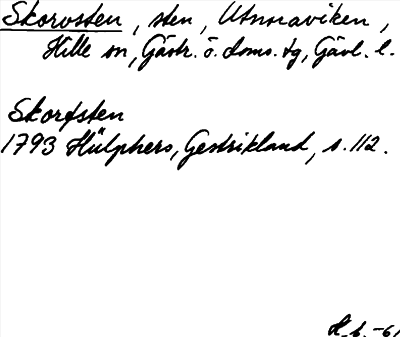 Skorvsten, sten, Utnoraviken,
Hille sn, Gästr. ö. doms. tg, Gävl. l.
Skorfsten
1793 Hülphers, Gestrikland, s. 112.